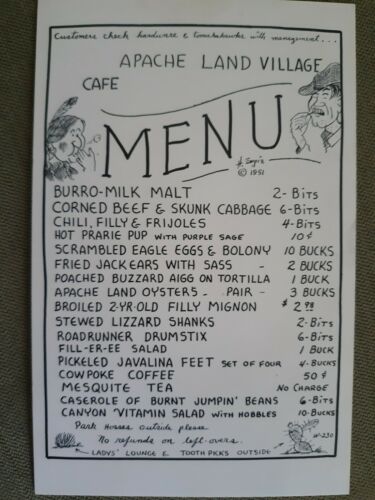 Customers check hardware & tomahawks with management....
APACHE LAND VILLAGE
CAFE
MENU
© 1951
BURRO-MILK MALT 2-BITS
CORNED BEEF & SKUNK CABBAGE 6-BITS
CHILI, FILLY & FRIJOLES 4-BITS
HOT PRARIE PUP WITH PURPLE SAGE 10¢
SCRAMBLED EAGLE EGGS & BOLONY 10 BUCKS
FRIED JACK EARS WITH SASS - 2 BUCKS
POACHED BUZZARD AIGG ON TORTILLA 1 BUCK
APACHE LAND OYSTERS - PAIR - 3 BUCKS
BROILED 2-YR-OLD FILLY MIGNON $2.98
STEWED LIZZARD SHANKS 2-BITS
ROADRUNNER DRUMSTIX 6-BITS
FILL-ER-EE SALAD 1 BUCK
PICKELED JAVALINA FEET SET OF FOUR 4-BUCKS
COWPOKE COFFEE 50¢
MESQUITE TEA NO CHARGE
CASEROLE OF BURNT JUMPIN' BEANS 6-BITS
CANYON 'VITAMIN SALAD WITH HOBBLES 10-BUCKS
Park Hosses outside please
No refunds on left-overs.
LADYS' LOUNGE & TOOTH PICKS OUTSIDE
W-230